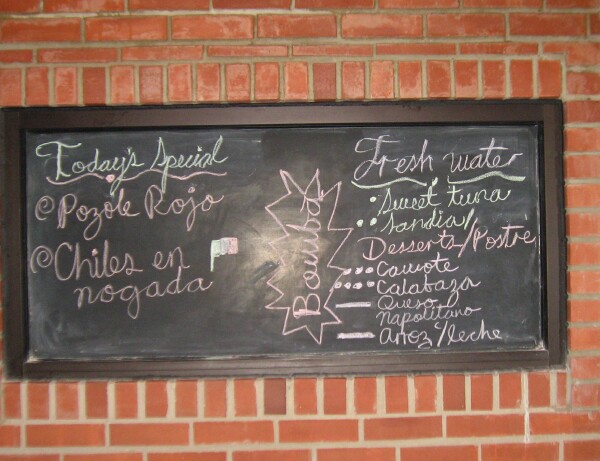 Today's Special
Pozole Rojo
Chiles en
nogada
Bomba
Fresh water
Sweet tuna
Sandia
Desserts/Postre
Camote
Calabaza
Queso
Napolitano
arroz c/leche